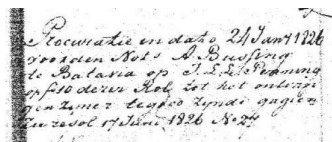 Procuratie in dato 24 Janij 1826
voor den Nots A. Bussing
te Batavia op J. L. L.
op fo 10 dezer Rol tot het ontvan
gen zyner tegoed zynde gagien
Zie resol 17 Junij 1826 No 27